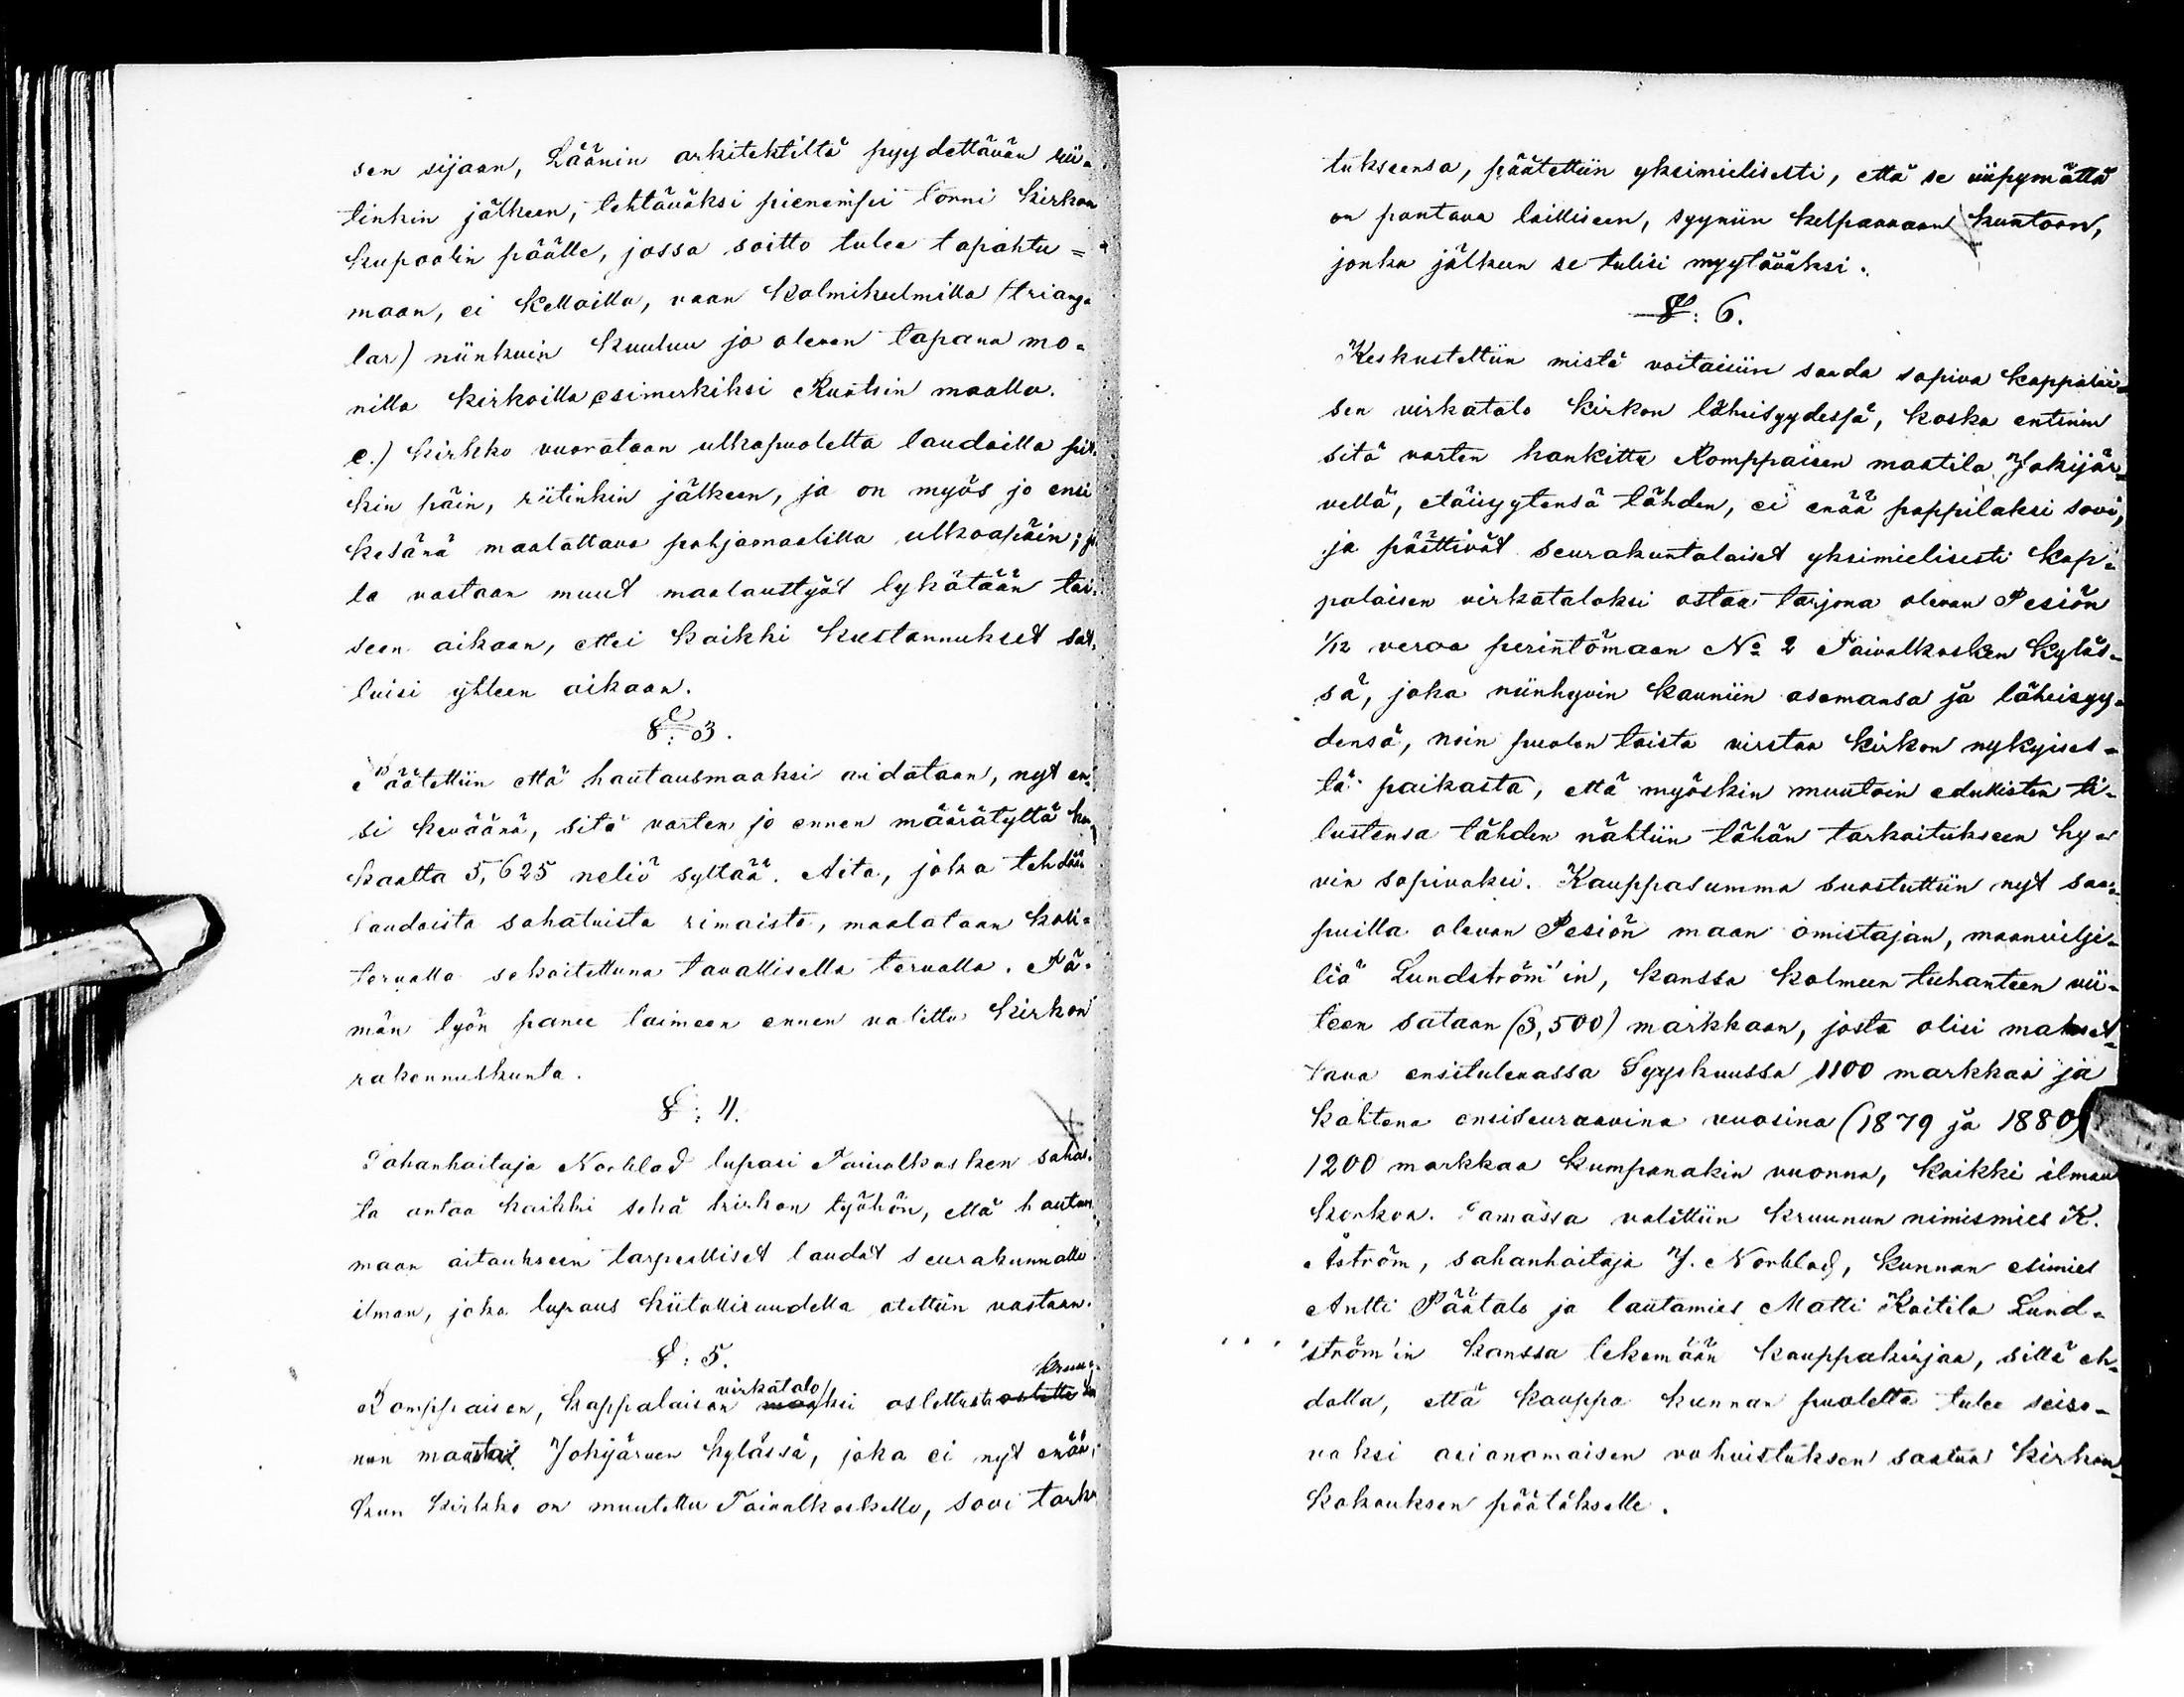 sen sijaan, Läänin arkitehtiltä pyydettävän rii-
tinkin jälkeen, tehtäväksi pienempi torni kirkon
kupoolin päälle, jossa soitto tulee tapahtu=
maan, ei kelloilla, vaan kolmikulmilla (triang
lar) niinkuin kuuluu jo olevan tapana mo-
nilla kirkoilla esimerkiksi Ruotsin maalla.
e.) Kirkko vuorataan ulkopuolelta laudoilla pit-
kin päin, riitinkin jälkeen, ja on myös jo ensi
kesänä maalattava pohjamaalilla ulkoapäin; jo
ta vastaan muut maalaustyöt lykätään toi-
seen aikaan, ettei kaikki kustannukset sat-
tuisi yhteen aikaan.
§: 3.
Päätettiin että hautausmaaksi aidataan, nyt en-
si keväänä, sitä varten jo ennen määrätyltä kan
kaalta 5,625 neliö syltää. Aita, joka tehdään
laudoista sahatuista rimoista, maalataan kivi-
tervalla sekoitettuna tavallisella tervalla. Tä-
män työn panee toimeen ennen valittu kirkon
rakennuskunta.
§: 4.
Sahanhoitaja Norblad lupasi Taivalkosken sahal-
ta antaa kaikki sekä kirkon työhön, että hautaus
maan aitaukseen tarpeelliset laudat seurakunnalle
ilman, joka lupaus kiitollisuudella otettiin vastaan.
§: 5.
Romppaisen, kappalaisen virkatalo/ksi ostettusta Kruu-
nun maatai Jokijärven kylässä, joka ei nyt enää,
kun kirkko on muutettu Taivalkoskelle, sovi tarko
tukseensa, päätettiin yksimielisesti, että se viipymättä
on pantava lailliseen, syyniin kelpaavaan kuntoon,
jonka jälkeen se tulisi myytäväksi.
§: 6.
Keskusteltiin mistä voitaisiin saada sopiva kappalai-
sen virkatalo kirkon läheisyydessä, koska entinen
sitä varten hankittu Romppaisen maatila Jokijär-
vellä, etäisyytensä tähden, ei enää pappilaksi sovi,
ja päättivät seurakuntalaiset yksimielisesti kap-
palaisen virkataloksi ostaa tarjona olevan Pesiön
1/12 veroa perintömaan No 2 Taivalkosken kyläs-
sä, joka niinhyvin kauniin asemansa ja läheisyy-
densä, noin puolen toista virstaa kirkon nykyises-
tä paikasta, että myöskin muutoin edullisten ti-
lustensa tähden nähtiin tähän tarkoitukseen hy-
vin sopivaksi. Kauppasumma suostuttiin nyt saa-
puilla olevan Pesiön maan omistajan, maanvilje-
liä Lundström'in, kanssa kolmeen tuhanteen vii-
teen sataan (3,500) markkaan, josta olisi makset-
tava ensitulevassa Syyskuussa 1100 markkaa ja
kahtena ensiseuraavina vuosina (1879 ja 1880)
1200 markkaa kumpanakin vuonna, kaikki ilman
korkoa. Samassa valittiin kruunun nimismies K.
Åström, sahanhoitaja J. Norblad, kunnan esimies
Antti Päätalo ja lautamies Matti Koitila Lund-
ström'in kanssa tekemään kauppakirjaa, sillä eh-
dolla, että kauppa kunnan puolelta tulee seiso-
vaksi asianomaisen vahvistuksen saatua kirkon-
kokouksen päätökselle.